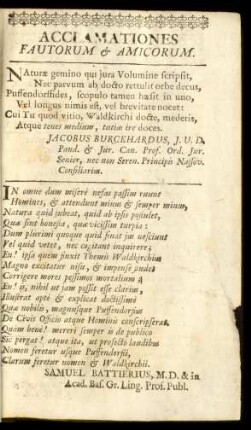 ACCLAMATIONES
FAUTORUM & AMICORUM.
NAturæ gemino qui jura Volumine scripsit,
Nec parvum ab docto rettulit orbe decus,
Puffendorffides, scopulo tamen hæsit in uno,
Vel longus nimis est, vel brevitate nocet:
Cui Tu quod vitio, Waldkirchi docte, mederis,
Atque tenes medium, tutius ire doces.
JACOBUS BURCKHARDUS, J. U. D.
Pand. & Jur. Can. Prof. Ord. Jur.
Senior, nec non Seren. Principis Nassov.
Consiliarius.
IN omne dum miseri nefas passim ruunt
Homines, & attendunt minus & semper minus,
Natura quid jubeat, quid ab ipsis postulet,
Quæ sint honesta, quæ vicissim turpia:
Dum plurimi quoque quid sinat jus nesciunt
Vel quid vetet, nec cogitant inquirere;
En! ipsa quem sinxit Themis Waldkirchius
Magno excitatur nisu, & impense studet
Corrigere mores pessimos mortalium;
En! is, nihil ut jam possit esse clarius,
Illustrat aptè & explicat doctissimè
Quæ nobilis, magnusque Puffendorfius
De Civis Officio atque Hominis conscripserat.
Quàm benè! mereri semper is de publico
Sic pergat! atque ita, ut profectò laudibus
Nomen feretur usque Puffendorfii,
Clarum feretur nomen & Waldkirchii.
SAMUEL BATTIERIUS, M.D. & in
Acad. Bas. Gr. Ling. Prof. Publ.